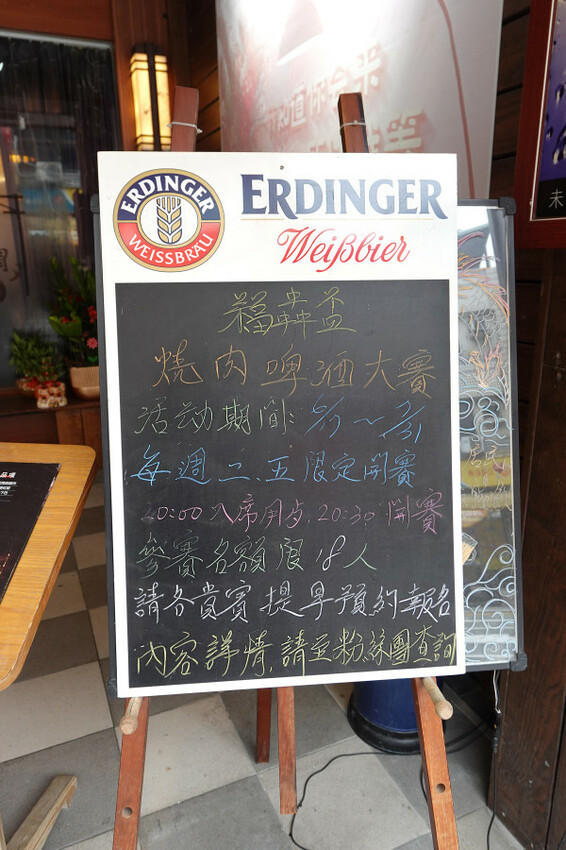 ERDINGER
WEISSBRÄU
ERDINGER
Weißbier
盃
燒肉啤酒大賽
活动期間: ~ 7/31
每週二、五限定開賽
20:00入席用歺, 20:30 開賽
參賽名額限18人
請各貴賽提早預約報名
內容詳情,請至粉絲團查詢
未